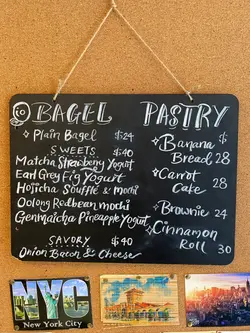 BAGEL
Plain Bagel $24
SWEETS $40
Matcha Strawberry Yogurt
Earl Grey Fig Yogurt
Hojicha Soufflé & mochi
Oolong Redbean mochi
Genmaicha Pineapple Yogurt
SAVORY $40
Onion Bacon & Cheese
PASTRY
Banana
Bread 28
Carrot
Cake 28
Brownie 24
Cinnamon
Roll 30
NYC
New York City